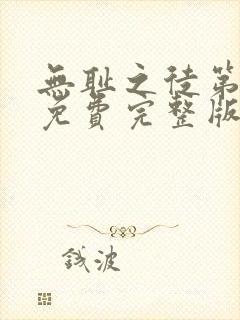 無恥之徒第
免費完整版
錢波